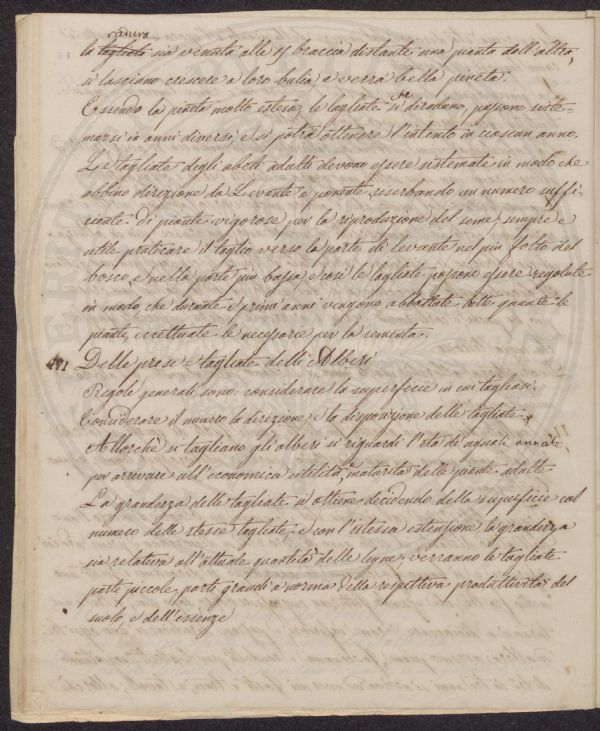 radura
la tagliata sia venuta alle 15 braccia distante una pianta dall'altra,
si lasciano crescere a loro balia, e verrà bella pineta.
Essendo la pineta molto estesa, le tagliate che diradano, possono siste=
marsi in anni diversi, e si potrà ottenere l'intento in ciascun anno.
Le tagliate degli abeti adulti devono essere sistemate in modo che
abbino direzione da Levante a ponente, riserbando un numero suffi
ciente di piante vigorose per la riproduzione del seme; sempre è
utile praticare il taglio verso la parte di levante nel più folto del
bosco, e nella parte più bassa, e così le tagliate possono essere regolate
in modo, che durante i primi anni vengono abbattute tutte quante le
piante, eccettuate le necessarie per la sementa.
191 Delle prese e tagliate delli Alberi
Regole generali sono: considerare la superficie in cui tagliasi.
Considerare il numero la direzione, e la disposizione delle tagliate.
Allorchè si tagliano gli alberi si riguardi l'età di uguali annate
per arrivare all'economica utilità, e maturità delle piante adulte
La grandezza delle tagliate si ottiene decidendo della superficie col
numero delle stesse tagliate, e con l'istessa estensione la grandezza
sia relativa all'attuale quantità delle legne, verranno le tagliate
parte piccole, parte grandi a norma della respettiva produttività del
suolo, e dell'essenze